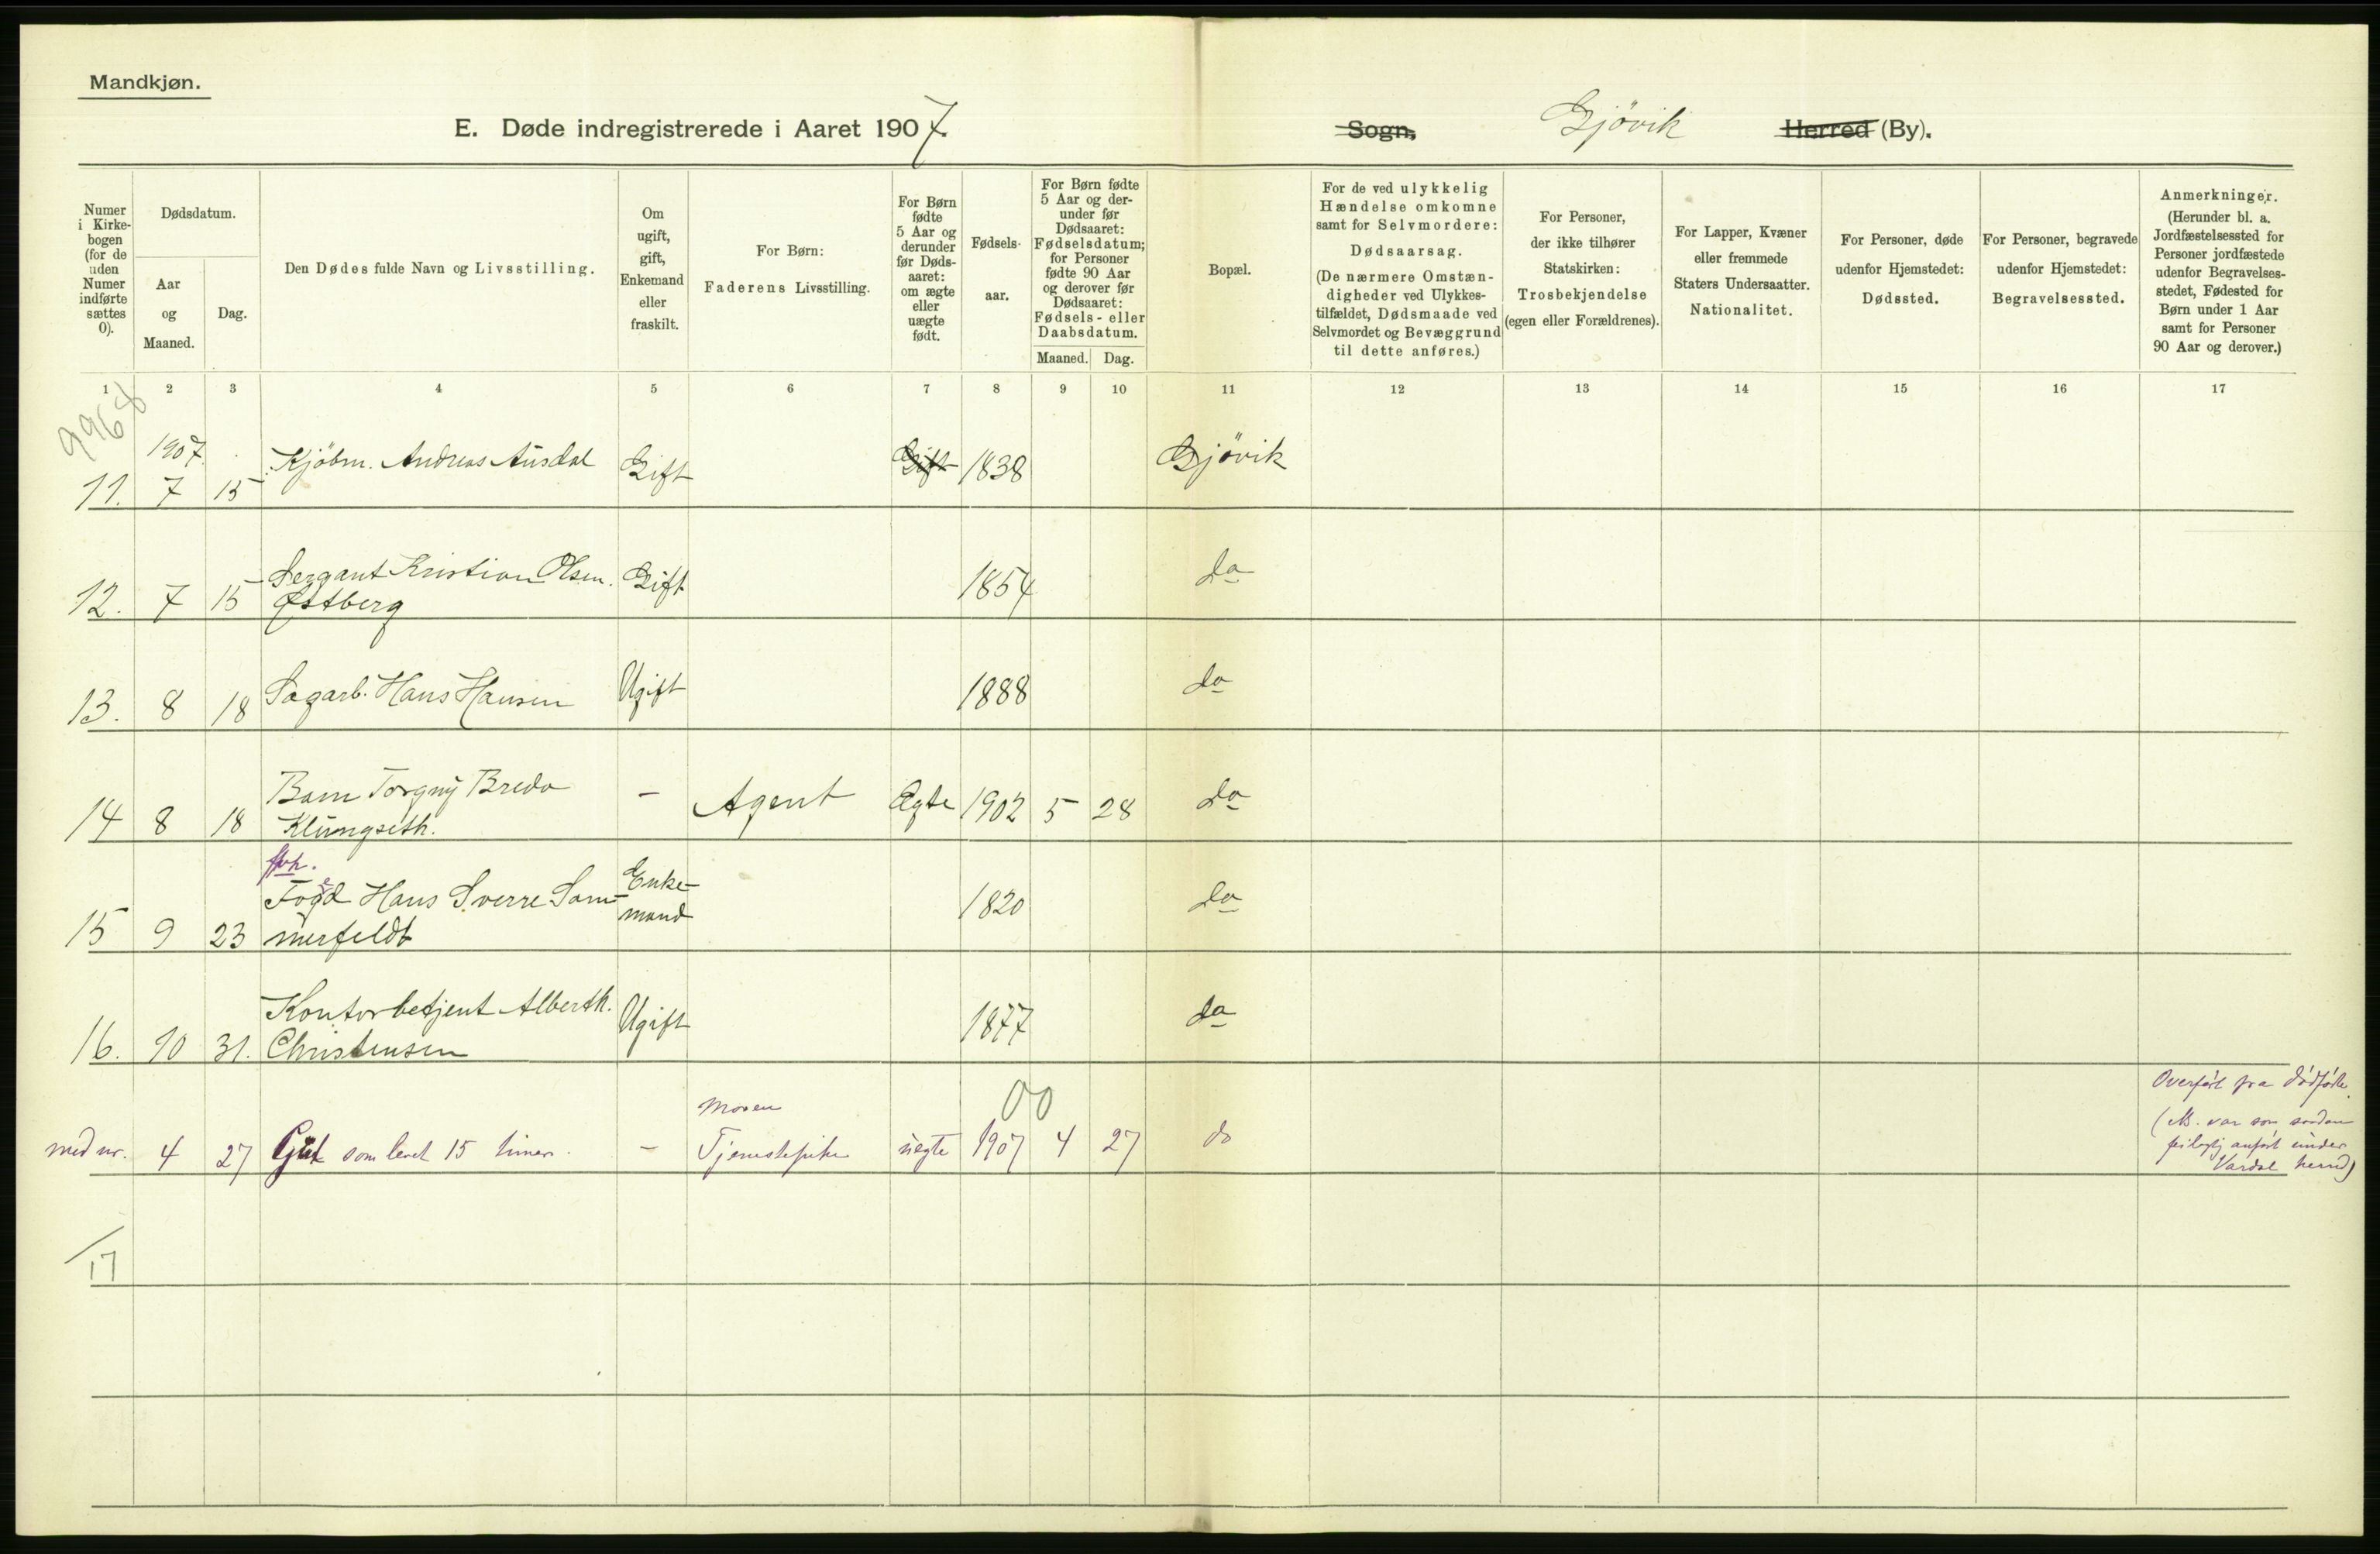 Mandkjøn.
E. Døde indregistrerede i Aaret 1907.
Sogn, Gjövik Herred (By).
Numer i Kirke-bogen (for de uden Numer indførte sættes 0).
Dødsdatum.
Aar og Maaned.
Dag.
Den Dødes fulde Navn og Livsstilling.
Om ugift, gift, Enkemand eller fraskilt.
For Børn: Faderens Livsstilling.
For Børn fødte 5 Aar og derunder før Døds-aaret: om ægte eller uægte født.
Fødsels-aar.
For Børn fødte 5 Aar og der-under før Dødsaaret: Fødselsdatum; for Personer fødte 90 Aar og derover før Dødsaaret: Fødsels- eller Daabsdatum.
Maaned. Dag.
Bopæl.
For de ved ulykkelig Hændelse omkomne samt for Selvmordere: Dødsaarsag. (De nærmere Omstæn-digheder ved Ulykkes-tilfældet, Dødsmaade ved Selvmordet og Bevæggrund til dette anføres.)
For Personer, der ikke tilhører Statskirken: Trosbekjendelse (egen eller Forældrenes).
For Lapper, Kvæner eller fremmede Staters Undersaatter. Nationalitet.
For Personer, døde udenfor Hjemstedet: Dødssted.
For Personer, begravede udenfor Hjemstedet: Begravelsessted.
Anmerkninger. (Herunder bl. a. Jordfæstelsessted for Personer jordfæstede udenfor Begravelses-stedet, Fødested for Børn under 1 Aar samt for Personer 90 Aar og derover.)
1 2 3 4 5 6 7 8 9 10 11 12 13 14 15 16 17
9968
1907.
11. 7 15 Kjöbm. Andreas Ausdal Gift Gift 1838 Gjövik
12. 7 15 Sergant Kristian Olsen
Østberg Gift 1854 do
13. 8 18 Sagarb. Hans Hansen Ugift 1888 do
14 8 18 Barn Torgny Breda
Klungseth. – Agent Ægte 1902 5 28 do
fhv.
15 9 23 Foged Hans Sverre Som-
merfeldt Enke-
mand 1820 do
16. 10 31. Kontorbetjent Alberth.
Christensen Ugift 1877 do
00
med nr. 4 27 Gut som levet 15 timer. – Moren
Tjenestepike uegte 1907 4 27 do
Overført fra dødfødte.
(NB. var som saadan
feilagtig anført under
Vardal herred)
17